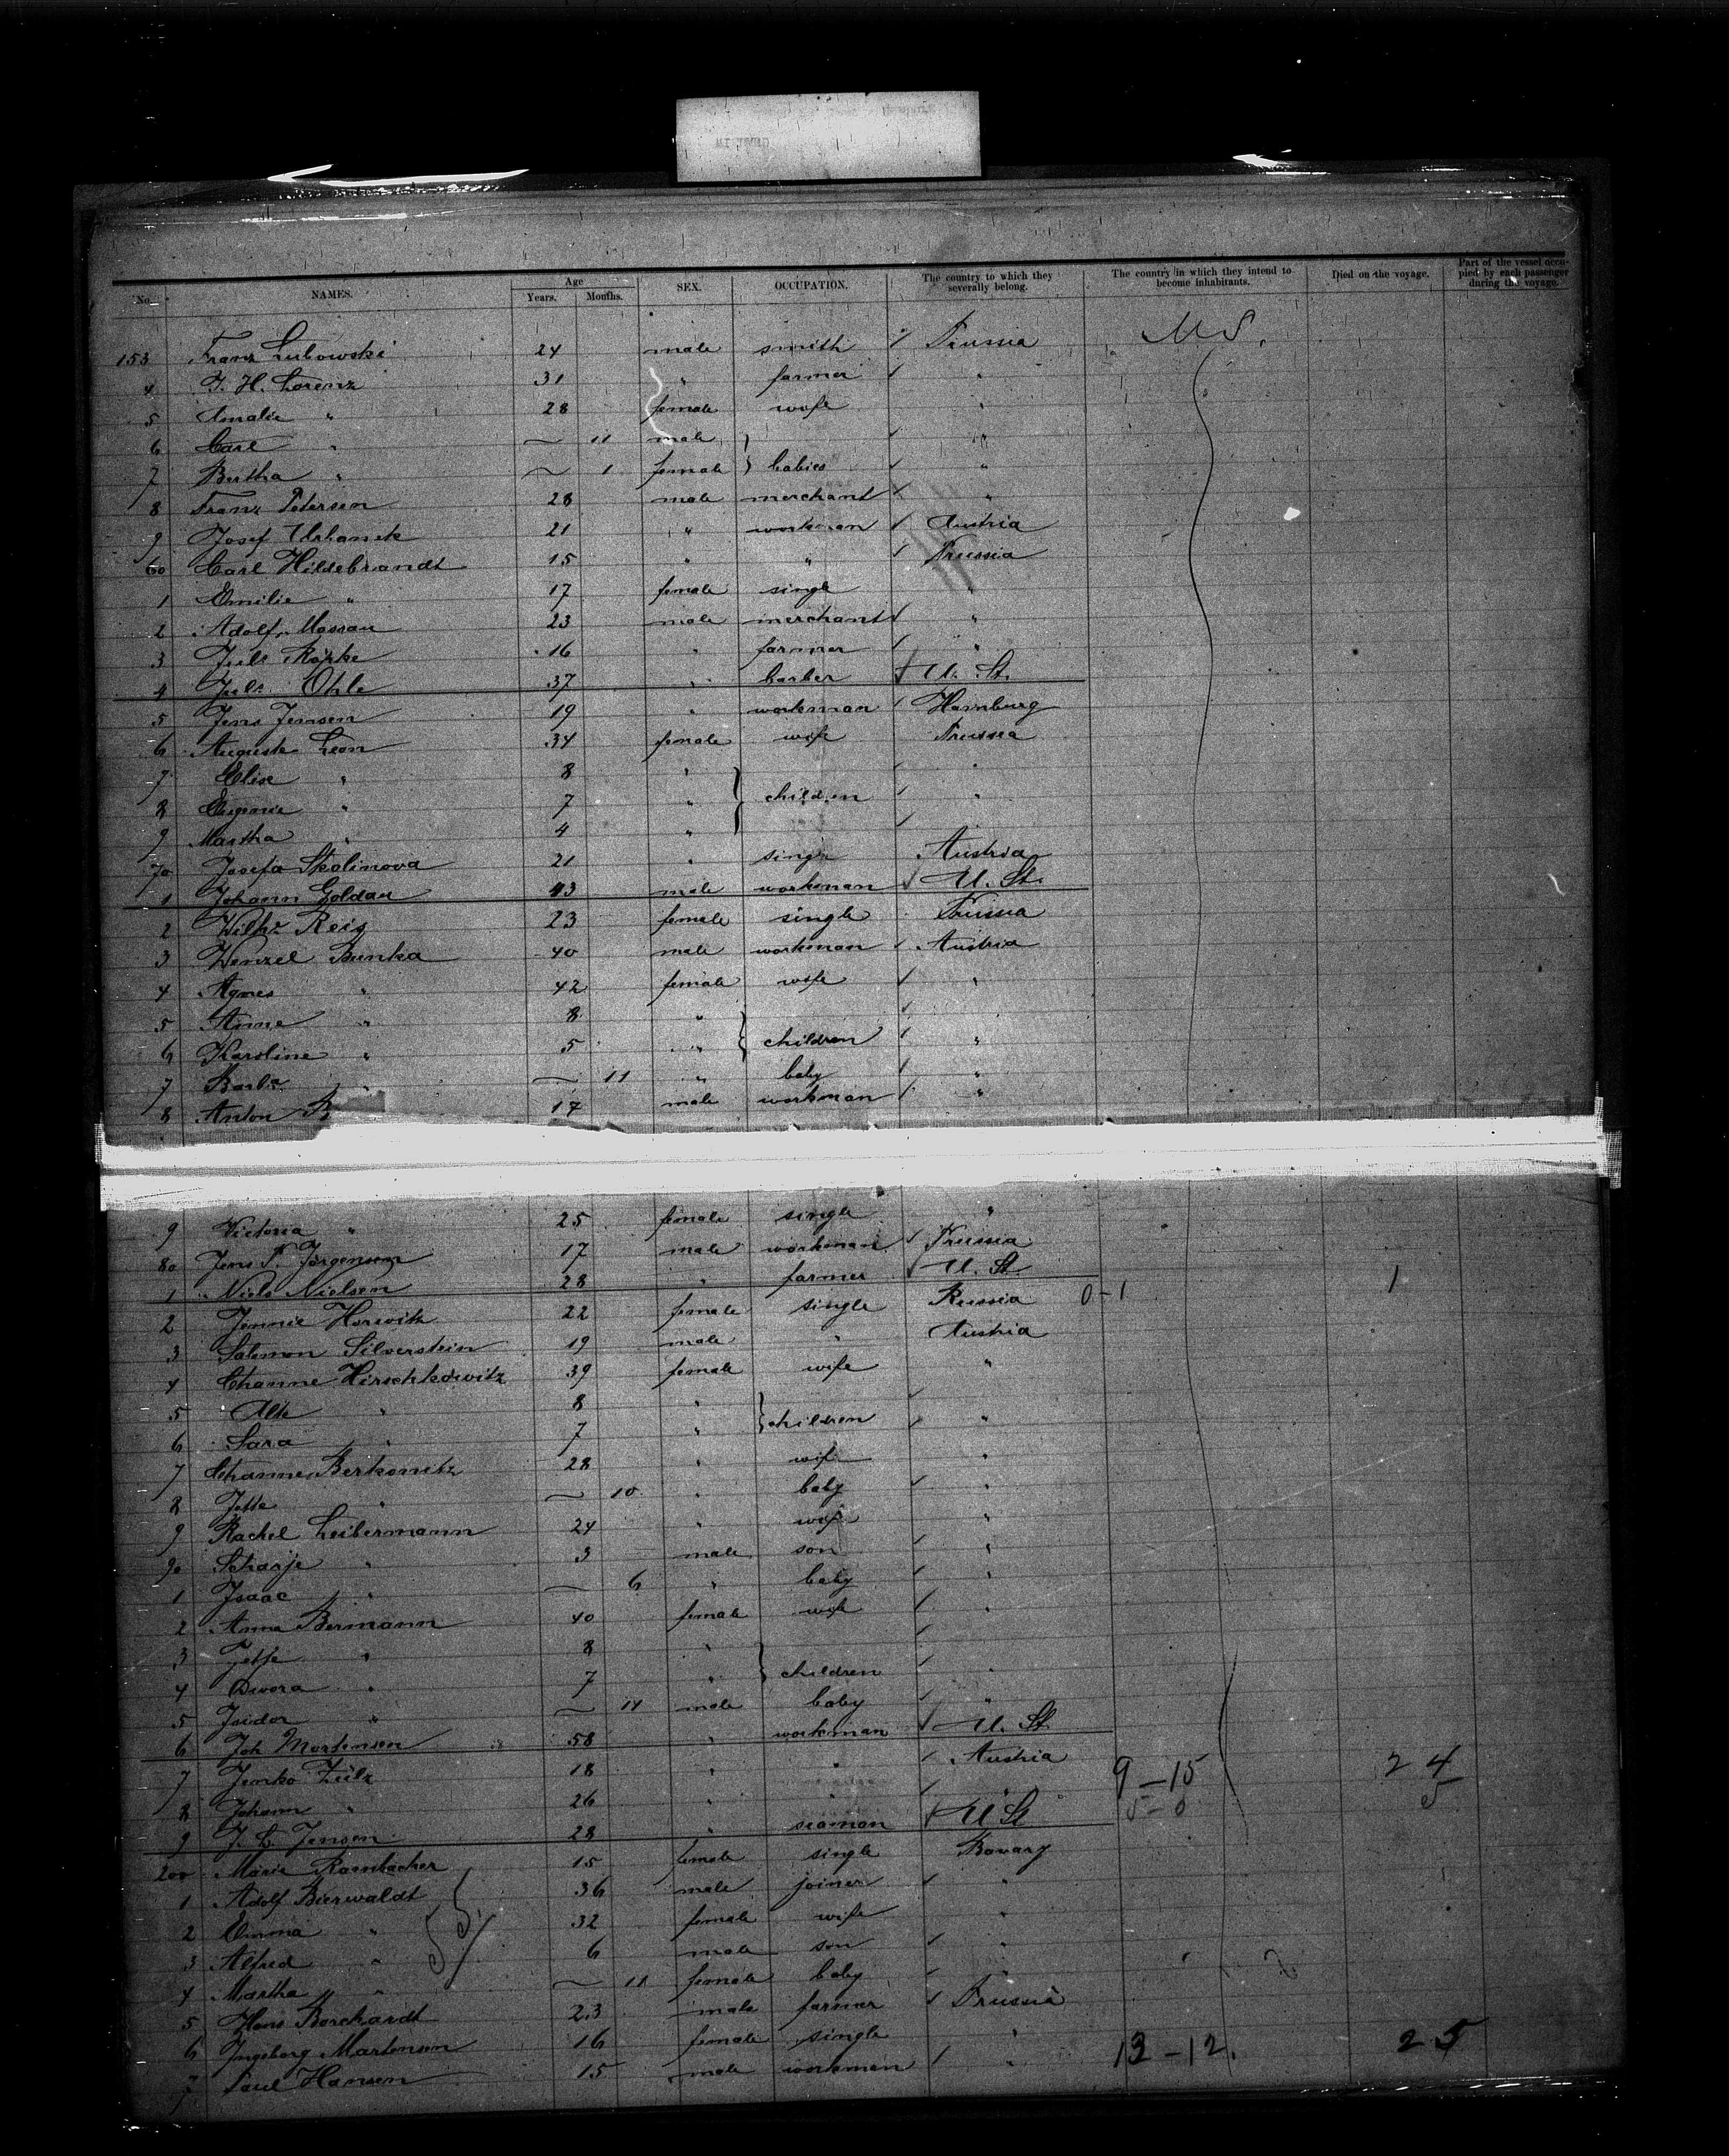 No. NAMES. Age Years. Months. SEX. OCCUPATION. The country to which they severally belong. The country in which they intend to become inhabitants. Died on the voyage. Part of the vessel occupied by each passenger during the voyage.
153 Franz Lubowski 24 male smith Prussia U S.
4 J. H. Lorenz 31 " farmer "
5 Amalie " 28 female wife "
6 Carl " — 11 male "
7 Bertha " — 1 female babies "
8 Franz Petersen 28 male merchant "
9 Josef Urbanek 21 " workman Austria
60 Carl Hildebrandt 15 " " Prussia
1 Emilie " 17 female single "
2 Adolf Massau 23 male merchant "
3 Juls Röpke 16 " farmer "
4 Juls Ohle 37 " barber U. St.
5 Jens Jensen 19 " workman Hamburg
6 Auguste Leon 34 female wife Prussia
7 Elise " 8 " "
8 Eugenie " 7 " children "
9 Martha " 4 "
70 Josefa Skolinova 21 " single Austria
1 Johann Goldau 43 male workman U. St.
2 Wilhe Reig 23 female single Prussia
3 Wenzel Bunka 40 male workman Austria
4 Agnes " 42 female wife "
5 Anne " 8 "
6 Karoline " 5 " children "
7 Barba " — 11 " baby "
8 Anton B 17 male workman "
9 Victoria " 25 female single "
80 Jens P. Jörgensen 17 male workman Prussia
1 Niels Nielsen 28 " farmer U. St. 1
2 Jennie Horwitz 22 female single Russia 0-1
3 Salomon Silverstein 19 male " Austria
4 Channe Hirschkowitz 39 female wife "
5 Alte " 8 "
6 Sara " 7 " children "
7 Channe Berkowitz 28 " wife "
8 Jette " — 10 " baby "
9 Rachel Leibermann 24 " wife "
90 Scharje " 3 male son "
1 Isaac " — 6 " baby "
2 Anna Bermann 40 female wife "
3 Jette " 8 "
4 Dwora " 7 " children "
5 Isidor " — 11 male baby "
6 Joh Mortensen 58 " workman U. St.
7 Janko Zulz 18 " " Austria 9-15 24
8 Johann " 26 " " " 5-0 5
9 J. C. Jensen 28 " seaman U St
200 Marie Rambacher 15 female single Bavary
1 Adolf Bierwaldt 36 male joiner "
2 Emma " 32 female wife "
3 Alfred " 6 male son "
4 Martha " — 11 female baby
5 Hans Borchardt 23 male farmer Prussia
6 Ingeborg Martensen 16 female single "
7 Paul Hansen 15 male workman " 13-12. 25